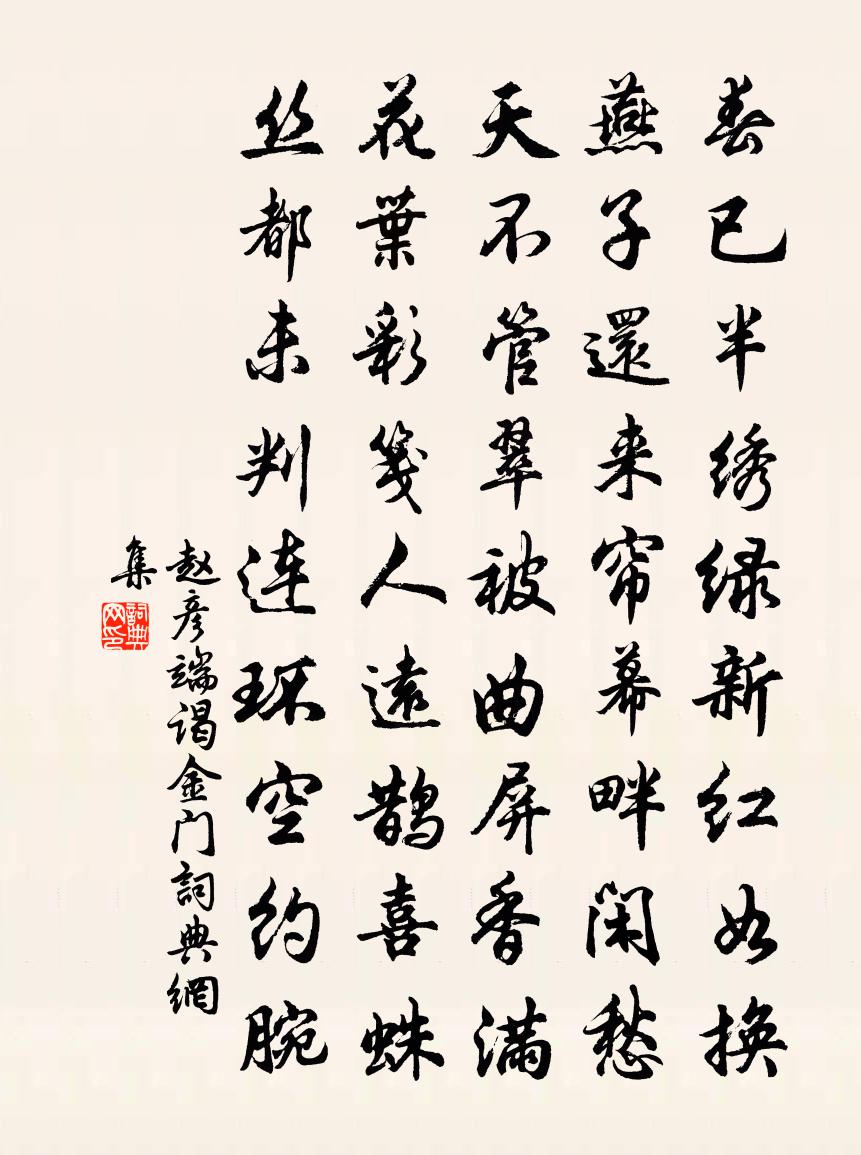 春已半绣绿新红如换
燕子還来帘幕畔闲愁
天不管翠被曲屏香满
花葉彩笺人遠鹊喜蛛
丝都未判连环空约腕
赵彦端谒金门詞典網
集
詞典
网印